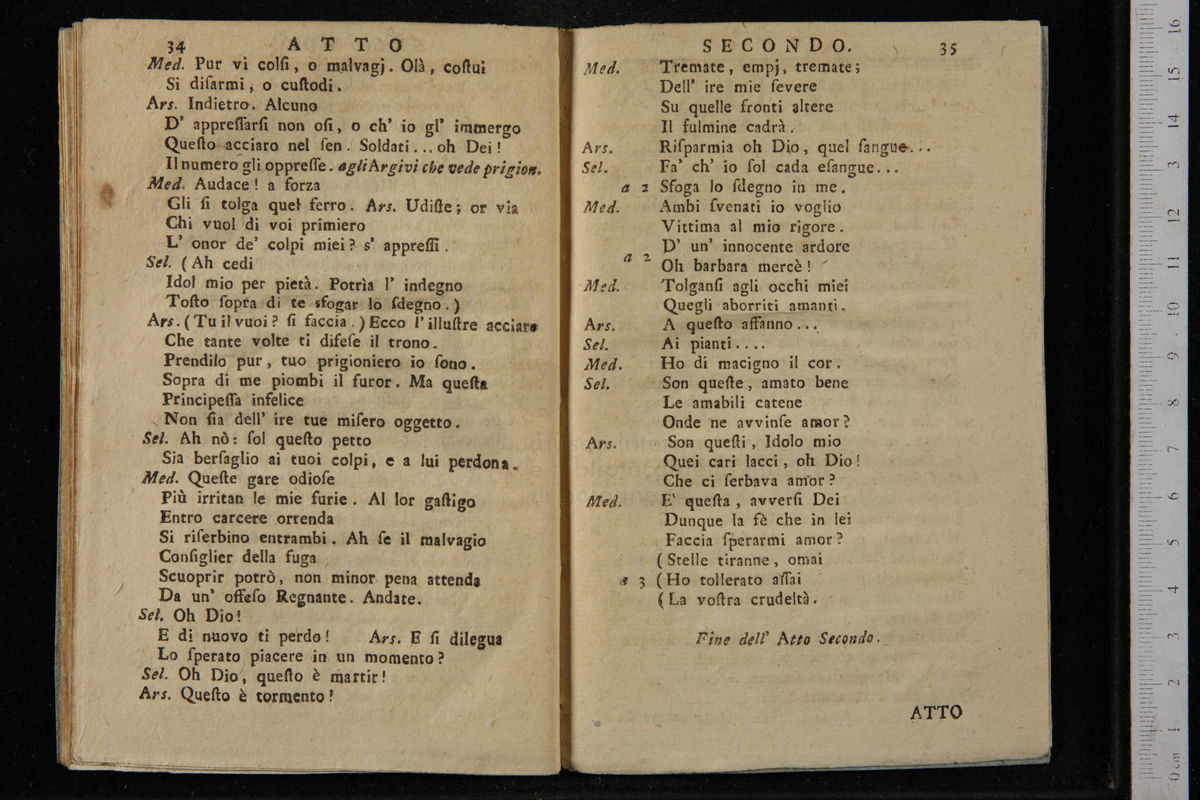 34 ATTO
Med. Pur vi colſi, o malvagj. Olà, coſtui
Si diſarmi, o cuſtodi.
Ars. Indietro. Alcuno
D' appreſſarſi non oſi, o ch' io gl' immergo
Queſto acciaro nel ſen. Soldati... oh Dei!
Il numero gli oppreſſe. agli Argivi che vede prigion.
Med. Audace! a forza
Gli ſi tolga quel ferro. Ars. Udiſte; or via
Chi vuol di voi primiero
L' onor de' colpi miei? s' appreſſi.
Sel. (Ah cedi
Idol mio per pietà. Potrìa l' indegno
Toſto ſopra di te sfogar lo ſdegno.)
Ars. (Tu il vuoi? ſi faccia.) Ecco l' illuſtre acciaro
Che tante volte ti difeſe il trono.
Prendilo pur, tuo prigioniero io ſono.
Sopra di me piombi il furor. Ma queſta
Principeſſa infelice
Non ſia dell' ire tue miſero oggetto.
Sel. Ah nò: ſol queſto petto
Sia berſaglio ai tuoi colpi, e a lui perdona.
Med. Queſte gare odioſe
Più irritan le mie furie. Al lor gaſtigo
Entro carcere orrenda
Si riſerbino entrambi. Ah ſe il malvagio
Conſiglier della fuga
Scuoprir potrò, non minor pena attenda
Da un' offeſo Regnante. Andate.
Sel. Oh Dio!
E di nuovo ti perdo! Ars. E ſi dilegua
Lo ſperato piacere in un momento?
Sel. Oh Dio, queſto è martir!
Ars. Queſto è tormento!
SECONDO. 35
Med. Tremate, empj, tremate;
Dell' ire mie ſevere
Su quelle fronti altere
Il fulmine cadrà.
Ars. Riſparmia oh Dio, quel ſangue...
Sel. Fa' ch' io ſol cada eſangue...
a 2 Sfoga lo ſdegno in me.
Med. Ambi ſvenati io voglio
Vittima al mio rigore.
D' un' innocente ardore
a 2 Oh barbara mercè!
Med. Tolganſi agli occhi miei
Quegli aborriti amanti.
Ars. A queſto affanno...
Sel. Ai pianti....
Med. Ho di macigno il cor.
Sel. Son queſte, amato bene
Le amabili catene
Onde ne avvinſe amor?
Ars. Son queſti, Idolo mio
Quei cari lacci, oh Dio!
Che ci ſerbava amor?
Med. E' queſta, avverſi Dei
Dunque la fè che in lei
Faccia ſperarmi amor?
(Stelle tiranne, omai
a 3 (Ho tollerato aſſai
(La voſtra crudeltà.
Fine dell' Atto Secondo.
ATTO
0 cm 1 2 3 4 5 6 7 8 9 10 11 12 13 14 15 16